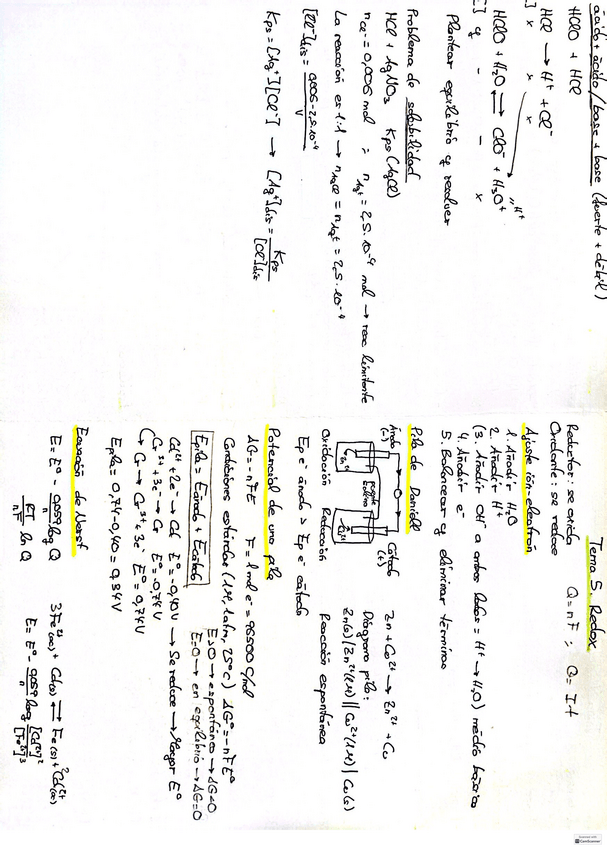 ácido + ácido / base + base (fuerte + débil)
HClO + HCl
HCl → H⁺ + Cl⁻
x x x
HClO + H₂O ⇌ ClO⁻ + H₃O⁺
"H⁺
Plantear equilibrio y resolver
Problema de solubilidad
HCl + AgNO₃ Kps (AgCl)
nCl⁻ = 0,006 mol ; nAg⁺ = 2,5·10⁻⁴ mol → reac limitante
La reacción es 1:1 → nAgCl = nAg⁺ = 2,5·10⁻⁴
[Cl⁻]dis = 0,006 - 2,5·10⁻⁴ / V
Kps = [Ag⁺][Cl⁻] → [Ag⁺]dis = Kps / [Cl⁻]dis
Tema 5. Redox
Reductor: se oxida Q = nF ; Q = I·t
Oxidante: se reduce
Ajuste ión-electrón
1. Añadir H₂O
2. Añadir H⁺
(3. Añadir OH⁻ a ambos lados = H⁺ → H₂O) medio básico
4. Añadir e⁻
5. Balancear y eliminar términos
Pila de Daniell
Ánodo (-)
Cátodo (+)
puente salino
Oxidación Reducción
Zn + Cu²⁺ → Zn²⁺ + Cu
Diagrama pila:
Zn(s) | Zn²⁺(1M) || Cu²⁺(1M) | Cu(s)
Reacción espontánea
Ep e⁻ ánodo > Ep e⁻ cátodo
Potencial de una pila
ΔG = -nFE F = 1 mol e⁻ = 96500 C/mol
Condiciones estándar (1M, 1atm, 25ºC) ΔG° = -nFE°
Epila = Eánodo + Ecátodo
E>0 → espontánea → ΔG<0
E=0 → en equilibrio → ΔG=0
Cd²⁺ + 2e⁻ → Cd E° = -0,40V → Se reduce → Mayor E°
Cr³⁺ + 3e⁻ → Cr E° = -0,74V
Cr → Cr³⁺ + 3e⁻ E° = 0,74V
Epila = 0,74 - 0,40 = 0,34V
Ecuación de Nernst
E = E° - 0,059/n log Q
RT/nF ln Q
3Fe²⁺(ac) + Cd(s) ⇌ Fe(s) + Cd²⁺(ac)
E = E° - 0,059/n log [Cd²⁺]² / [Fe²⁺]³
CamScanner